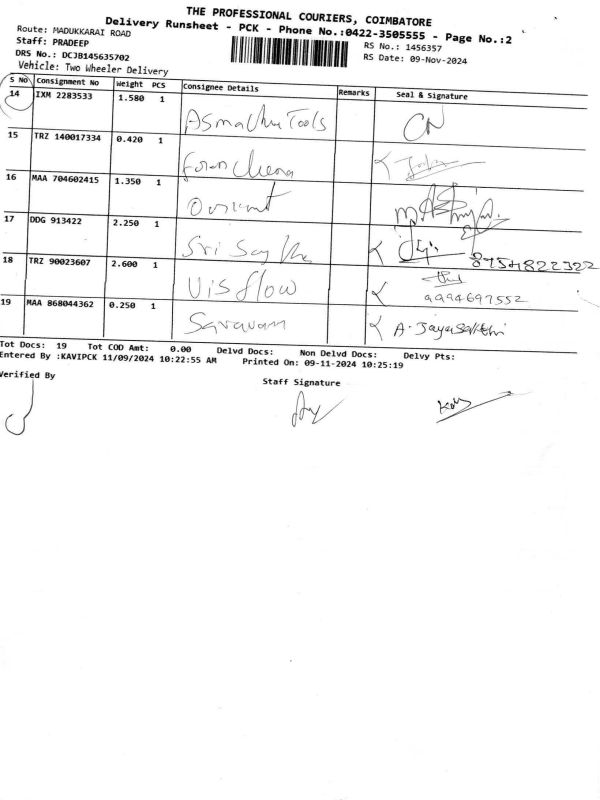 THE PROFESSIONAL COURIERS, COIMBATORE
Delivery Runsheet - PCK - Phone No.:0422-3505555 - Page No.:2
Route: MADUKKARAI ROAD
Staff: PRADEEP
DRS No.: DCJB145635702
Vehicle: Two Wheeler Delivery
RS No.: 1456357
RS Date: 09-Nov-2024
S No Consignment No Weight PCS Consignee Details Remarks Seal & Signature
14 IXM 2283533 1.580 1 Tools
15 TRZ 140017334 0.420 1
16 MAA 704602415 1.350 1
17 DDG 913422 2.250 1 Sri 8754822322
18 TRZ 90023607 2.600 1 Vis flow 9994697552
19 MAA 868044362 0.250 1 A. Jayasakthi
Tot Docs: 19 Tot COD Amt: 0.00 Delvd Docs: Non Delvd Docs: Delvy Pts:
Entered By :KAVIPCK 11/09/2024 10:22:55 AM Printed On: 09-11-2024 10:25:19
Verified By
Staff Signature